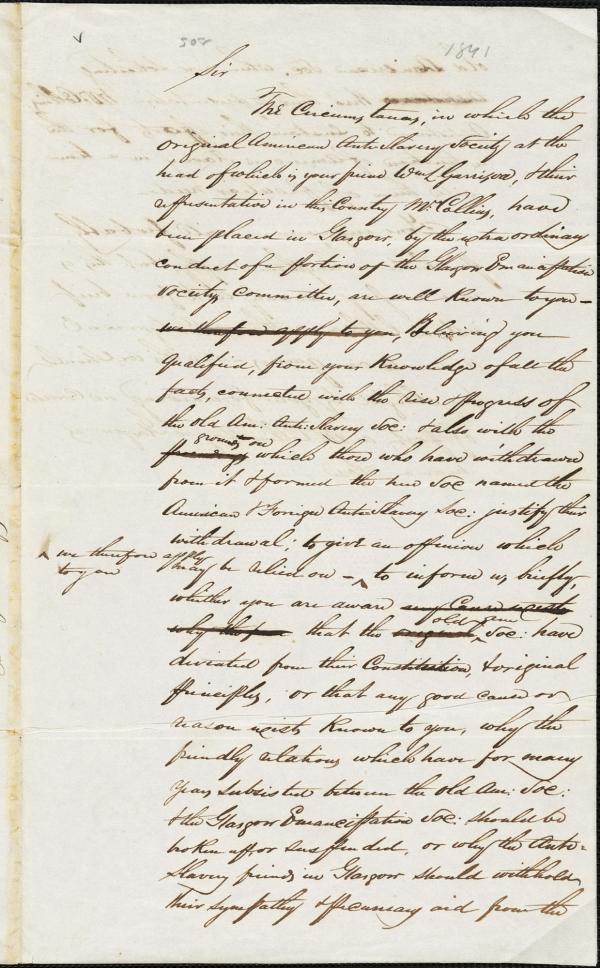 1841
Sir
The Circumstances, in which the
original American Anti Slavery Society at the
head of which is your friend Wm L Garrison, & their
representative in this Country Mr. Collins, have
been placed in Glasgow, by the extraordinary
conduct of a portion of the Glasgow Emancipation
Society's Committee, are well known to you –
we therefore apply to you, Believing you
qualified, from your Knowledge of all the
facts, connected with the rise & progress of
the old Am: Anti:Slavery Soc: & also with the
grounds on
which those who have withdrawn
from it & formed the new Soc named the
American & Foreign Anti:Slavery Soc: justify their
withdrawal; to give an opinion which
may be relied on – ^ to inform us, briefly,
^ we therefore apply
to you
whether you are aware any Cause exists
old Am:
why the that the original ^ Soc: have
deviated from their Constitution, & original
principles, or that any good cause or
reason exists known to you, why the
friendly relations which have for many
years subsisted between the old Am: Soc:
& the Glasgow Emancipation Soc: should be
broken off or suspended, or why the Anti=
Slavery friends in Glasgow should withhold
their sympathy & pecuniary aid from the